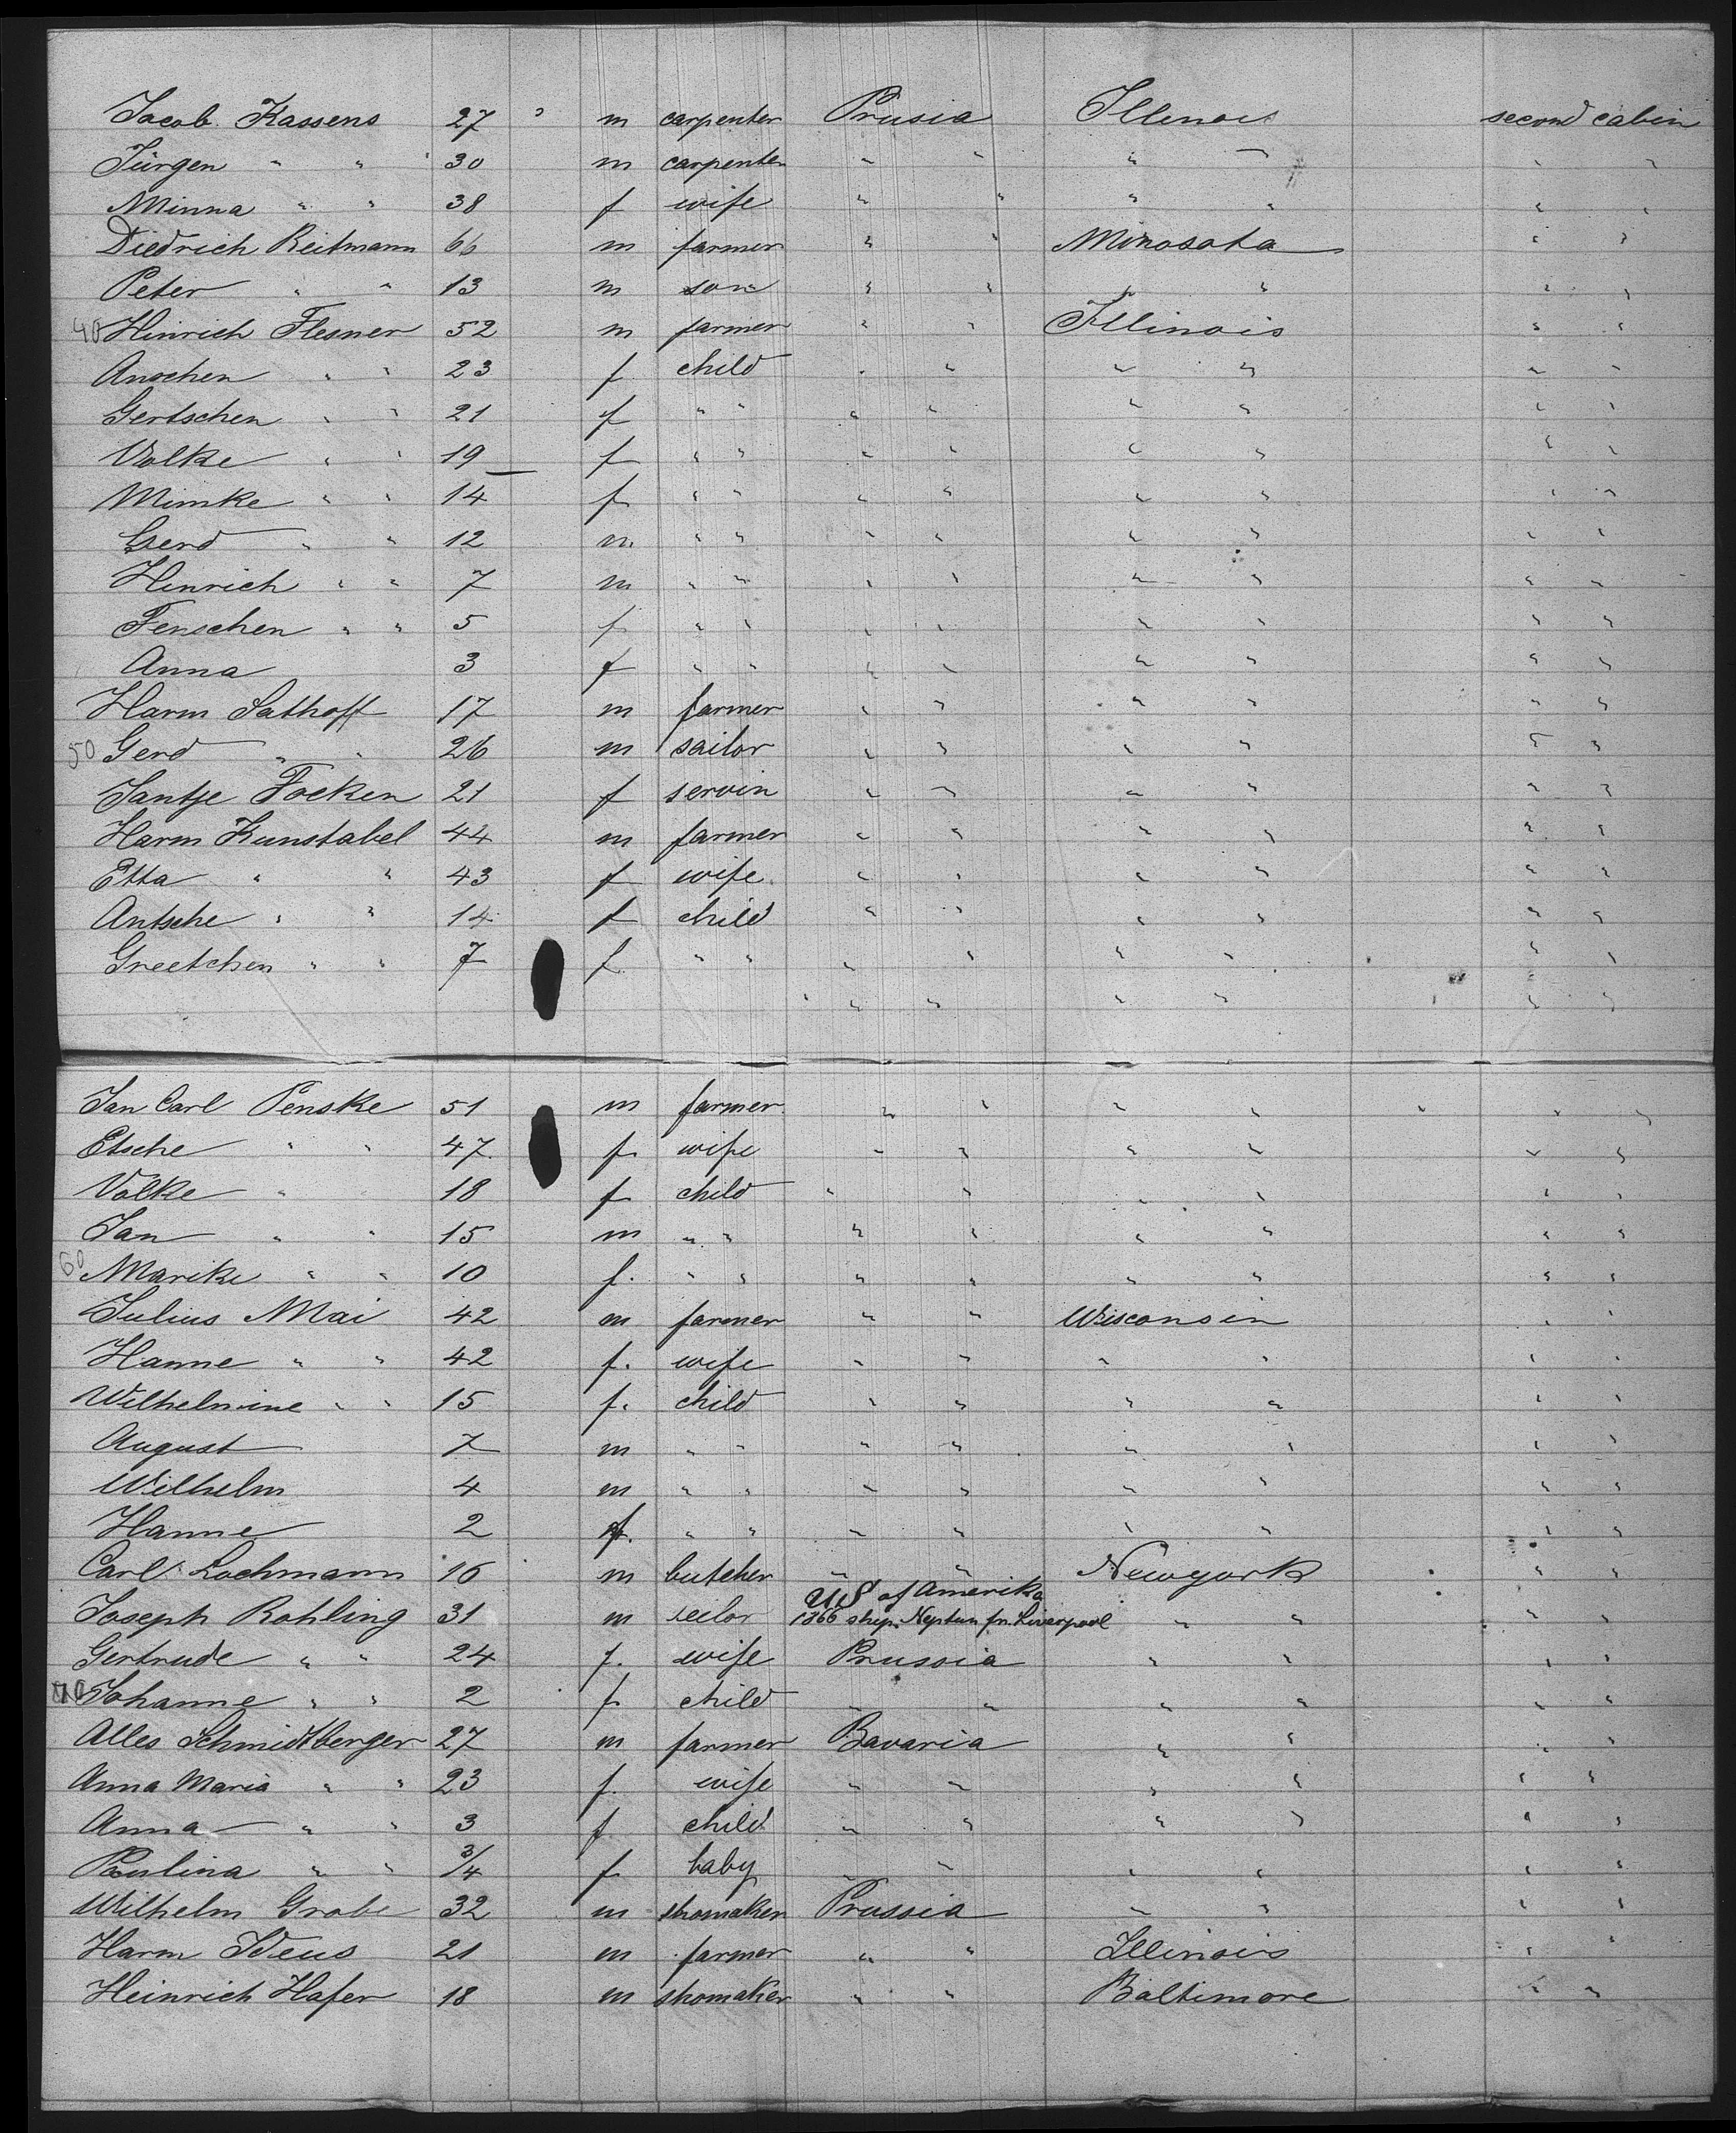 Jacob Kassens 27 m carpenter Prusia Illenois second cabin
Jürgen " " 30 m carpenter " " " " " "
Minna " " 38 f wife " " " " " "
Diedrich Reitmann 66 m farmer " " Minosota " "
Peter " " 13 m son " " " " " "
40 Hinrich Flesner 52 m farmer " " Illinois " "
Anschen " " 23 f child " " " " " "
Gertschen " " 21 f " " " " " " " "
Volke " " 19 f " " " " " " " "
Mimke " " 14 f " " " " " " " "
Gerd " " 12 m " " " " " " " "
Hinrich " " 7 m " " " " " " " "
Fenschen " " 5 f " " " " " " " "
Anna 3 f " " " " " " " "
Harm Sathoff 17 m farmer " " " " " "
50 Gerd " " 26 m sailor " " " " " "
Jantje Focken 21 f servin " " " " " "
Harm Kunstabel 44 m farmer " " " " " "
Etta " " 43 f wife " " " " " "
Antsche " " 14 f child " " " " " "
Greetchen " " 7 f " " " " " " " "
" " " " " "
Jan Carl Penske 51 m farmer " " " " " "
Etsche " " 47 f wife " " " " " "
Volke " 18 f child " " " " " "
Jan " " 15 m " " " " " " " "
60 Marike " " 10 f. " " " " " " " "
Julius Mai 42 m farmer " " Wisconsin " "
Hanne " " 42 f. wife " " " " " "
Wilhelmine " " 15 f. child " " " " " "
August 7 m " " " " " " " "
Wilhelm 4 m " " " " " " " "
Hanne 2 f. " " " " " " " "
Carl Lochmann 16 m butcher " " Newyork " "
US of Amerika
Joseph Rohling 31 m seilor 1866 ship Neptun fr. Liverpool " " " "
Gertrude " " 24 f. wife Prussia " " " "
70 Johanne " " 2 f child " " " " " "
Alles Schmidtberger 27 m farmer Bavaria " " " "
Anna Maria " " 23 f. wife " " " " " "
Anna " " 3 f child " " " " " "
Paulina " " 3/4 f baby " " " " " "
Wilhelm Grobe 32 m shomaker Prussia " " " "
Harm Ideus 21 m farmer " " Illinois " "
Heinrich Hafer 18 m shomaker " " Baltimore " "